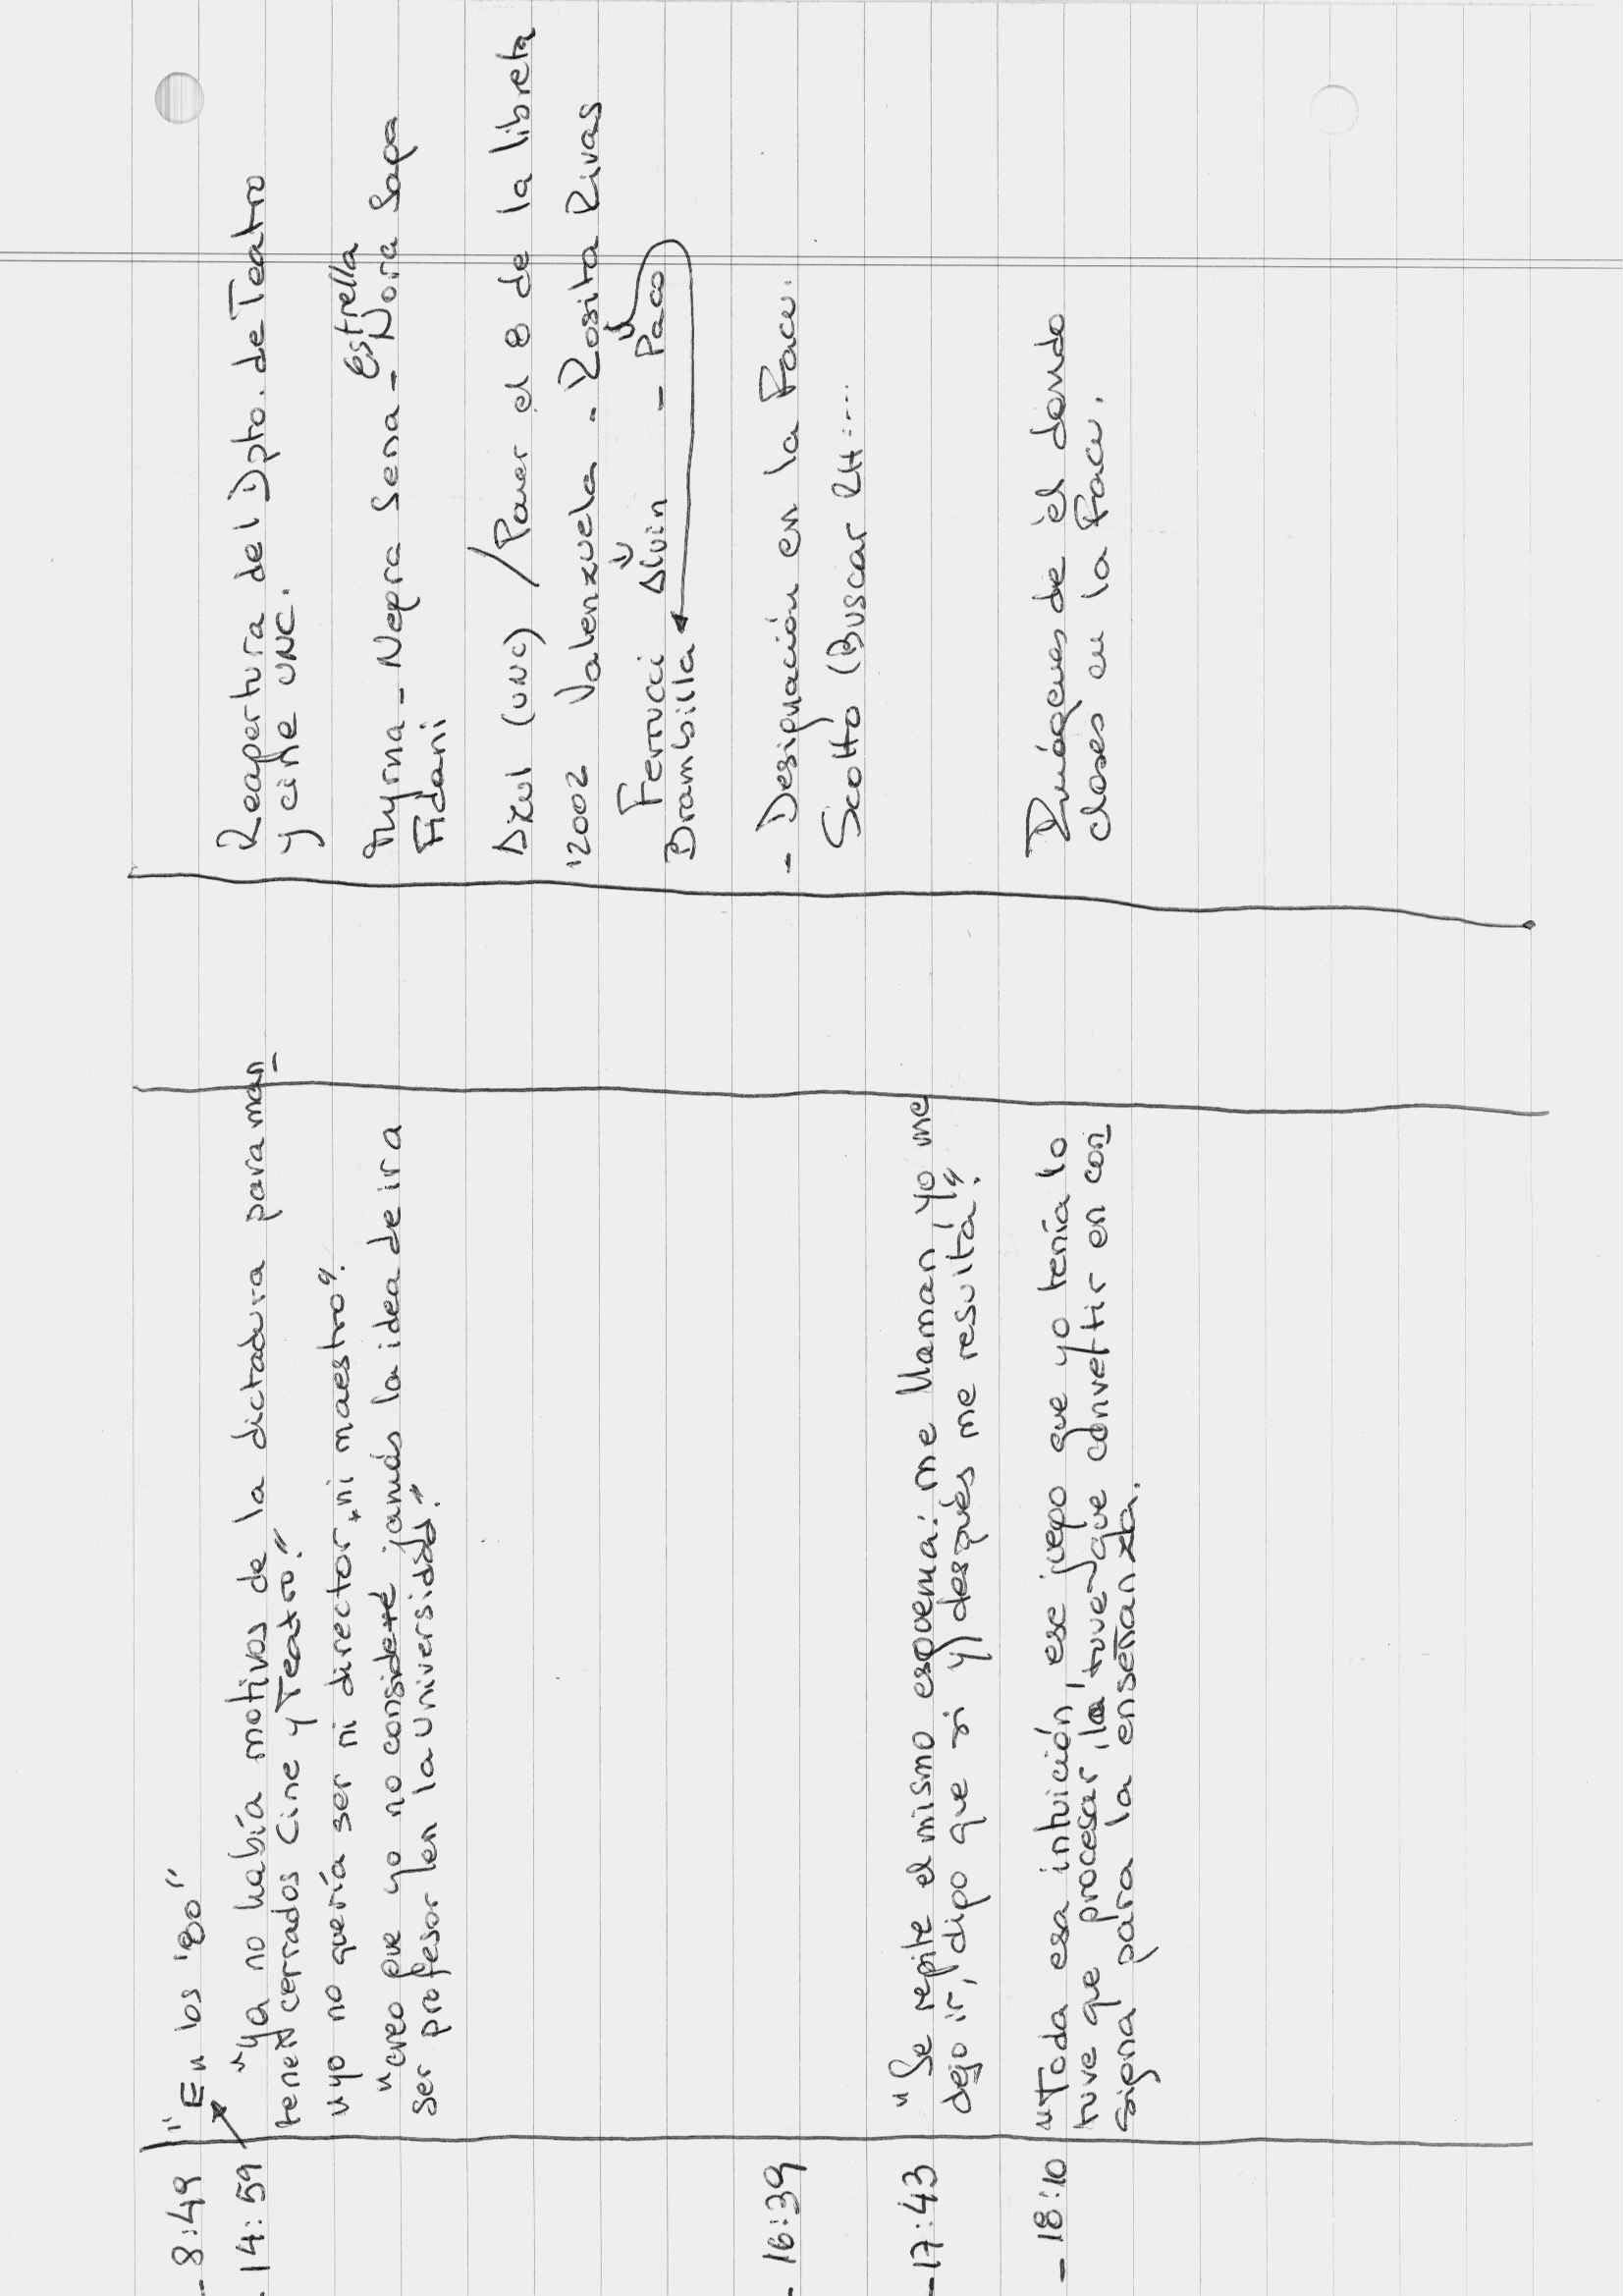 - 8:49 "En los '80"
- 14:59 "ya no había motivos de la dictadura para man
tener cerrados Cine y Teatro."
"yo no quería ser ni director, ni maestro".
"creo que yo no consideré jamás la idea de ir a
ser profesor en la Universidad."
- 16:39
- 17:43 "Se repite el mismo esquema: me llaman, yo me
dejo ir, digo que si y después me resulta".
- 18:10 "Toda esa intuición, ese juego que yo tenía lo
tuve que procesar, la tuve que convertir en con
signa para la enseñanza.
Reapertura del Dpto. de Teatro
y cine UNC.
Estrella
Myrna - Negra Sena - Nora Sopa
Fidani
Azul (UNC) / Poner el 8 de la libreta
'2002 Valenzuela - Rosita Rivas
Ferrucci Alvin - Paco
Brambilla
- Designación en la Facu.
Scotto (Buscar RH....
Imágenes de él dando
clases en la Facu.